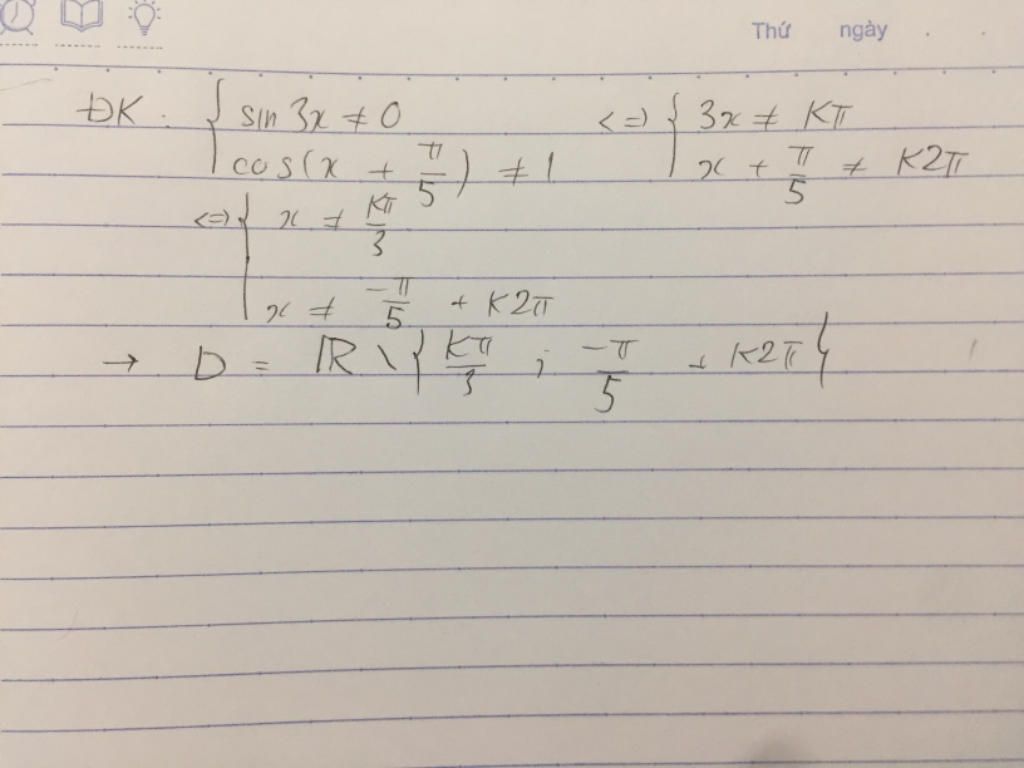 Thứ ngày
ĐK: { sin 3x ≠ 0 <=> { 3x ≠ Kπ
cos(x + π/5) ≠ 1 x + π/5 ≠ K2π
<=> { x ≠ Kπ/3
x ≠ -π/5 + K2π
→ D = ℝ \ { Kπ/3 ; -π/5 + K2π }